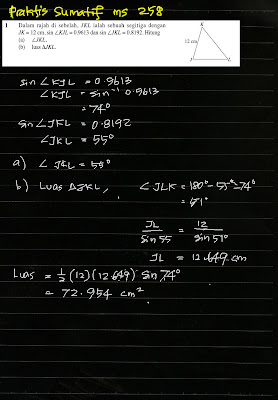 Praktis Sumatif ms 258
1 Dalam rajah di sebelah, JKL ialah sebuah segitiga dengan
JK = 12 cm, sin ∠KJL = 0.9613 dan sin ∠JKL = 0.8192. Hitung
(a) ∠JKL,
(b) luas ΔJKL.
K
12 cm
J
L
sin ∠KJL = 0.9613
∠KJL = sin⁻¹ 0.9613
= 74°
sin ∠JKL = 0.8192
∠JKL = 55°
a) ∠JKL = 55°
b) Luas ΔJKL, ∠JLK = 180° - 55° - 74°
= 51°
JL / sin 55 = 12 / sin 51°
JL = 12.649 cm
Luas = 1/2 (12)(12.649) sin 74°
= 72.954 cm²